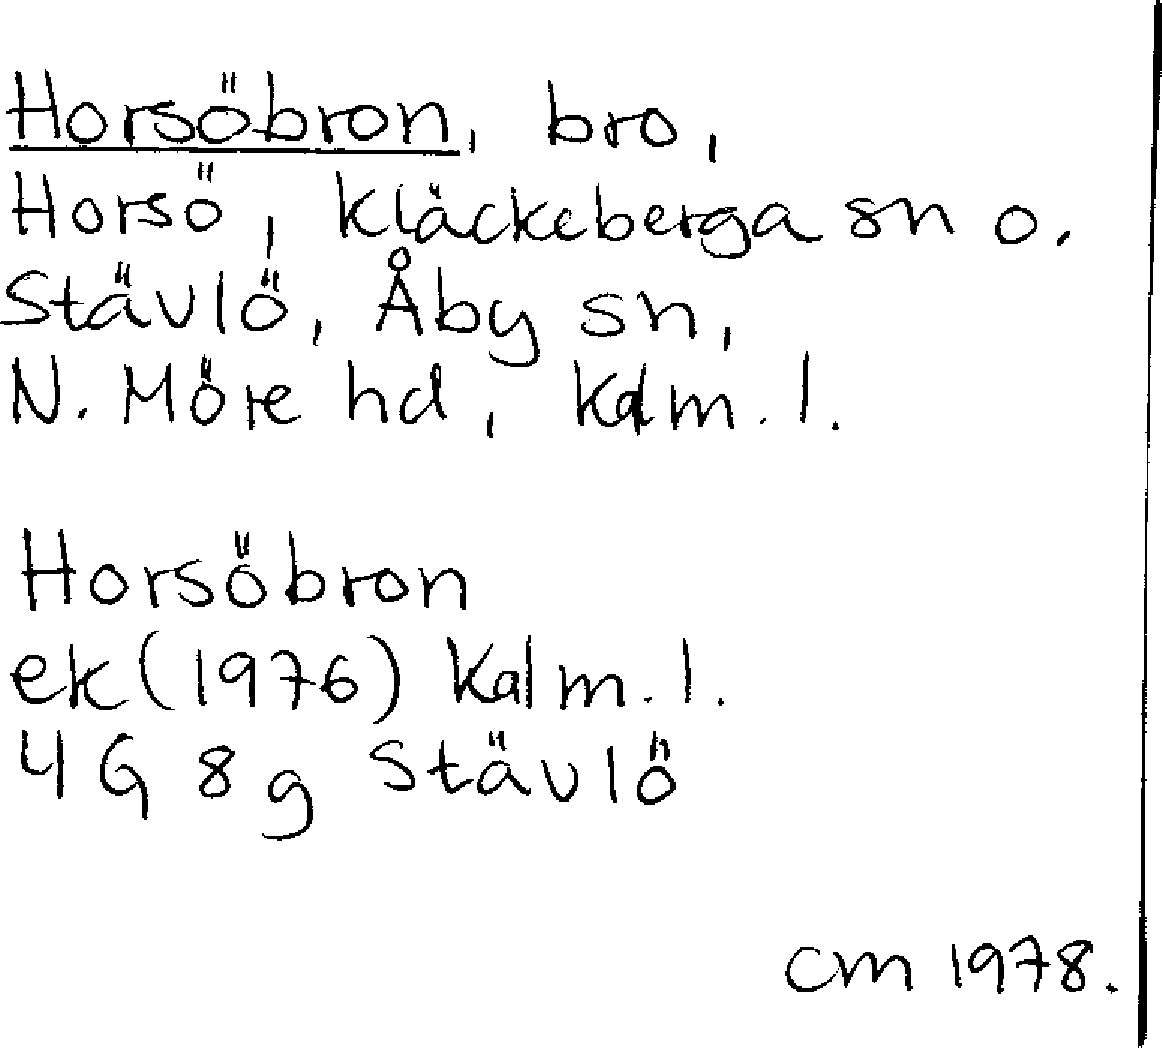 Horsöbron, bro,
Horsö, Kläckeberga sn o.
Stävlö, Åby sn,
N. Möre hd, Kalm. l.
Horsöbron
ek (1976) Kalm. l.
4G 8g Stävlö
CM 1978.